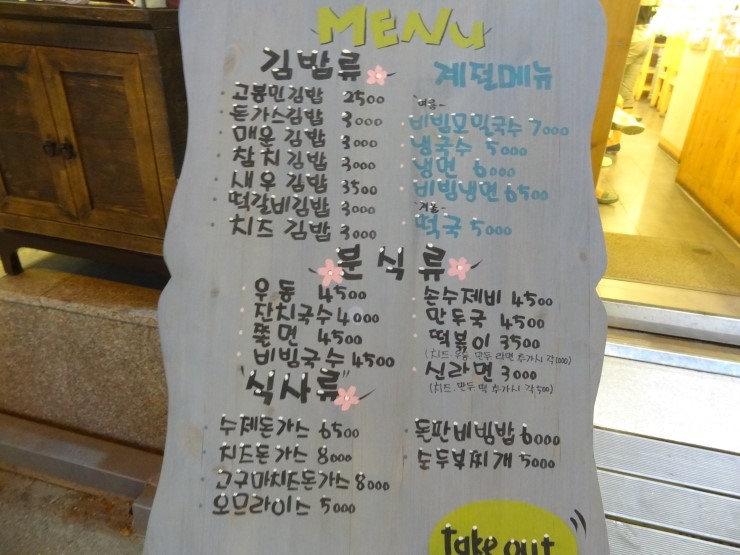 MENU
김밥류
고봉민김밥 2500
돈가스김밥 3000
매운김밥 3000
참치김밥 3000
새우김밥 3500
떡갈비김밥 3000
치즈김밥 3000
계절메뉴
"여름~
비빔모밀국수 7000
냉국수 5000
냉면 6000
비빔냉면 6500
"겨울~
떡국 5000
분식류
우동 4500
잔치국수 4000
쫄면 4500
비빔국수 4500
손수제비 4500
만두국 4500
떡볶이 3500
(치즈·우동·만두·라면 추가시 각 1000)
신라면 3000
(치즈·만두·떡 추가시 각 500)
"식사류"
수제돈가스 6500
치즈돈가스 8000
고구마치즈돈가스 8000
오므라이스 5000
돌판비빔밥 6000
순두부찌개 5000
Take out